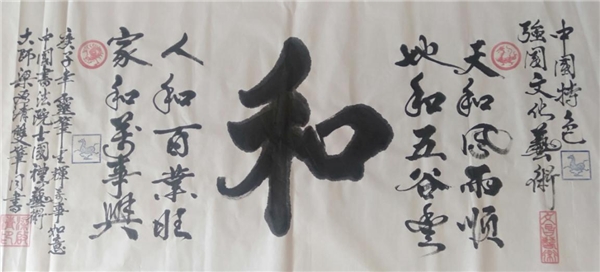 中國特色
強國文化藝術
天和風雨順
地和五谷豐
和
人和百業旺
家和萬事興
庚子年
中国書法院士國禮藝術
大師梁